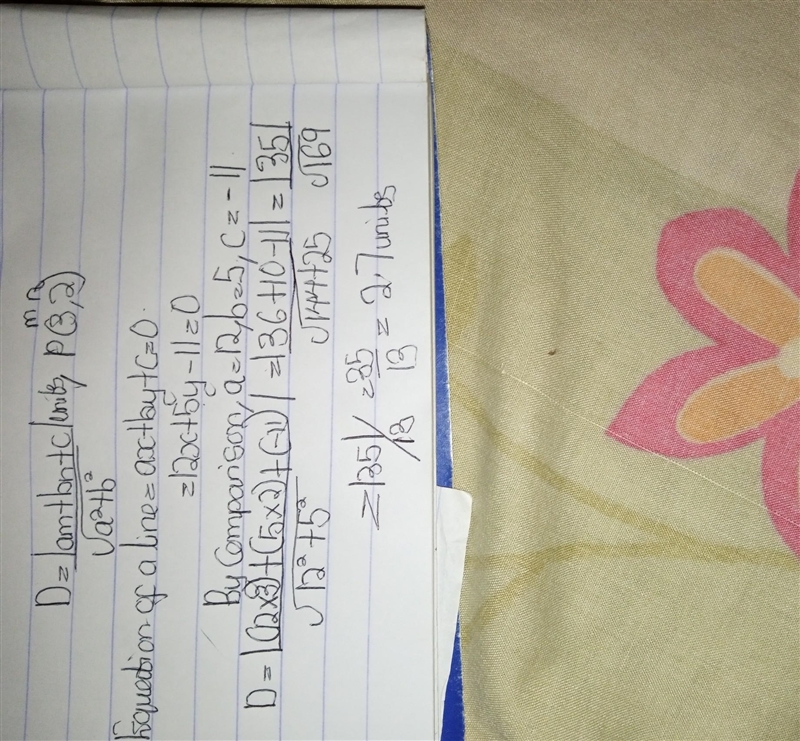 D = |am+bn+c| units, P(3,2)
m n
√a²+b²
Equation of a line = ax+by+c=0.
= 12x+5y-11=0
By Comparison, a=12, b=5, c=-11
D = |(12x3)+(5x2)+(-11)| = |36+10-11| = |35|
√12²+5² √144+25 √169
= |35|/13 = 35/13 = 2.7 units